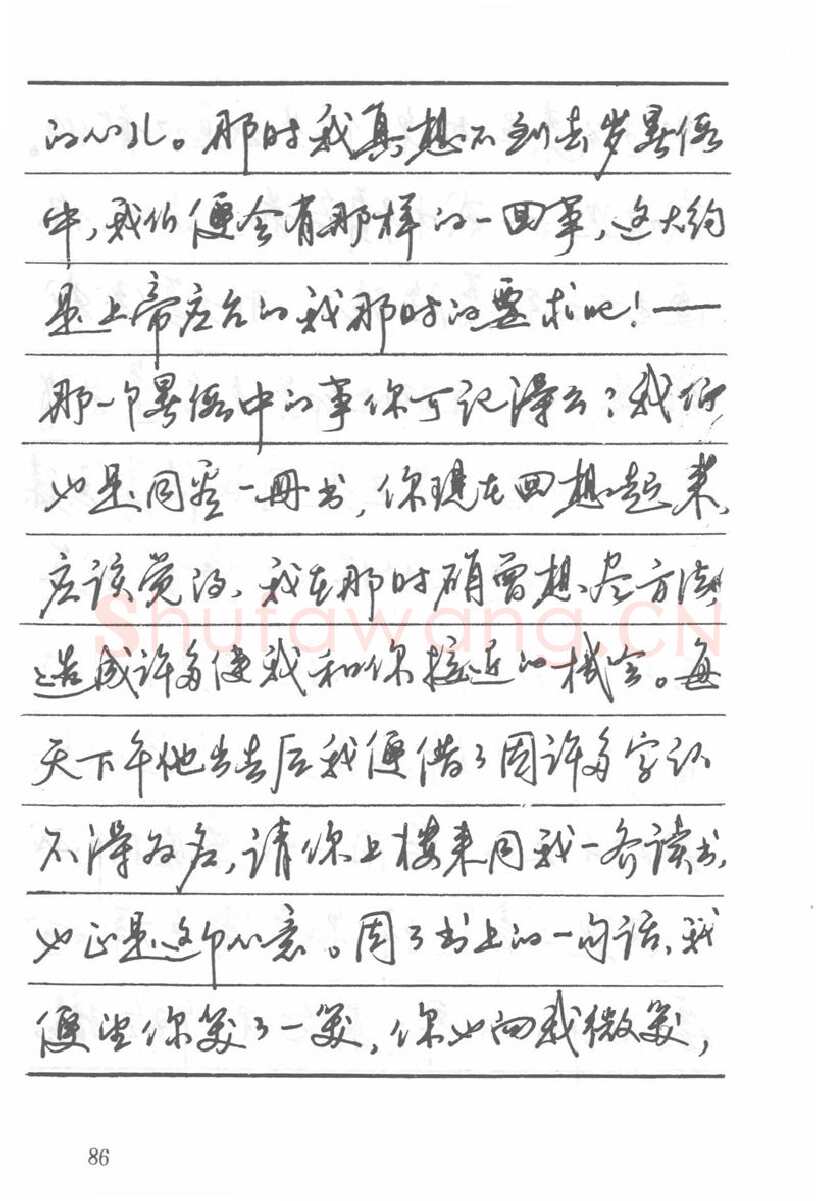 的心儿。那时我真想不到去岁暑假
中,我们便会有那样的一回事,这大约
是上帝应允的我那时的要求吧!——
那一个暑假中的事你可记得么?我们
也是同看一册书,你现在回想起来,
应该觉得,我在那时确曾想尽方法,
造成许多使我和你接近的机会。每
天下午他出去后我便借了因许多字认
不得为名,请你上楼来同我一齐读书,
也正是这个心意。因了书上的一句话,我
便望你笑了一笑,你也向我微笑,
86
Shufawang.CN